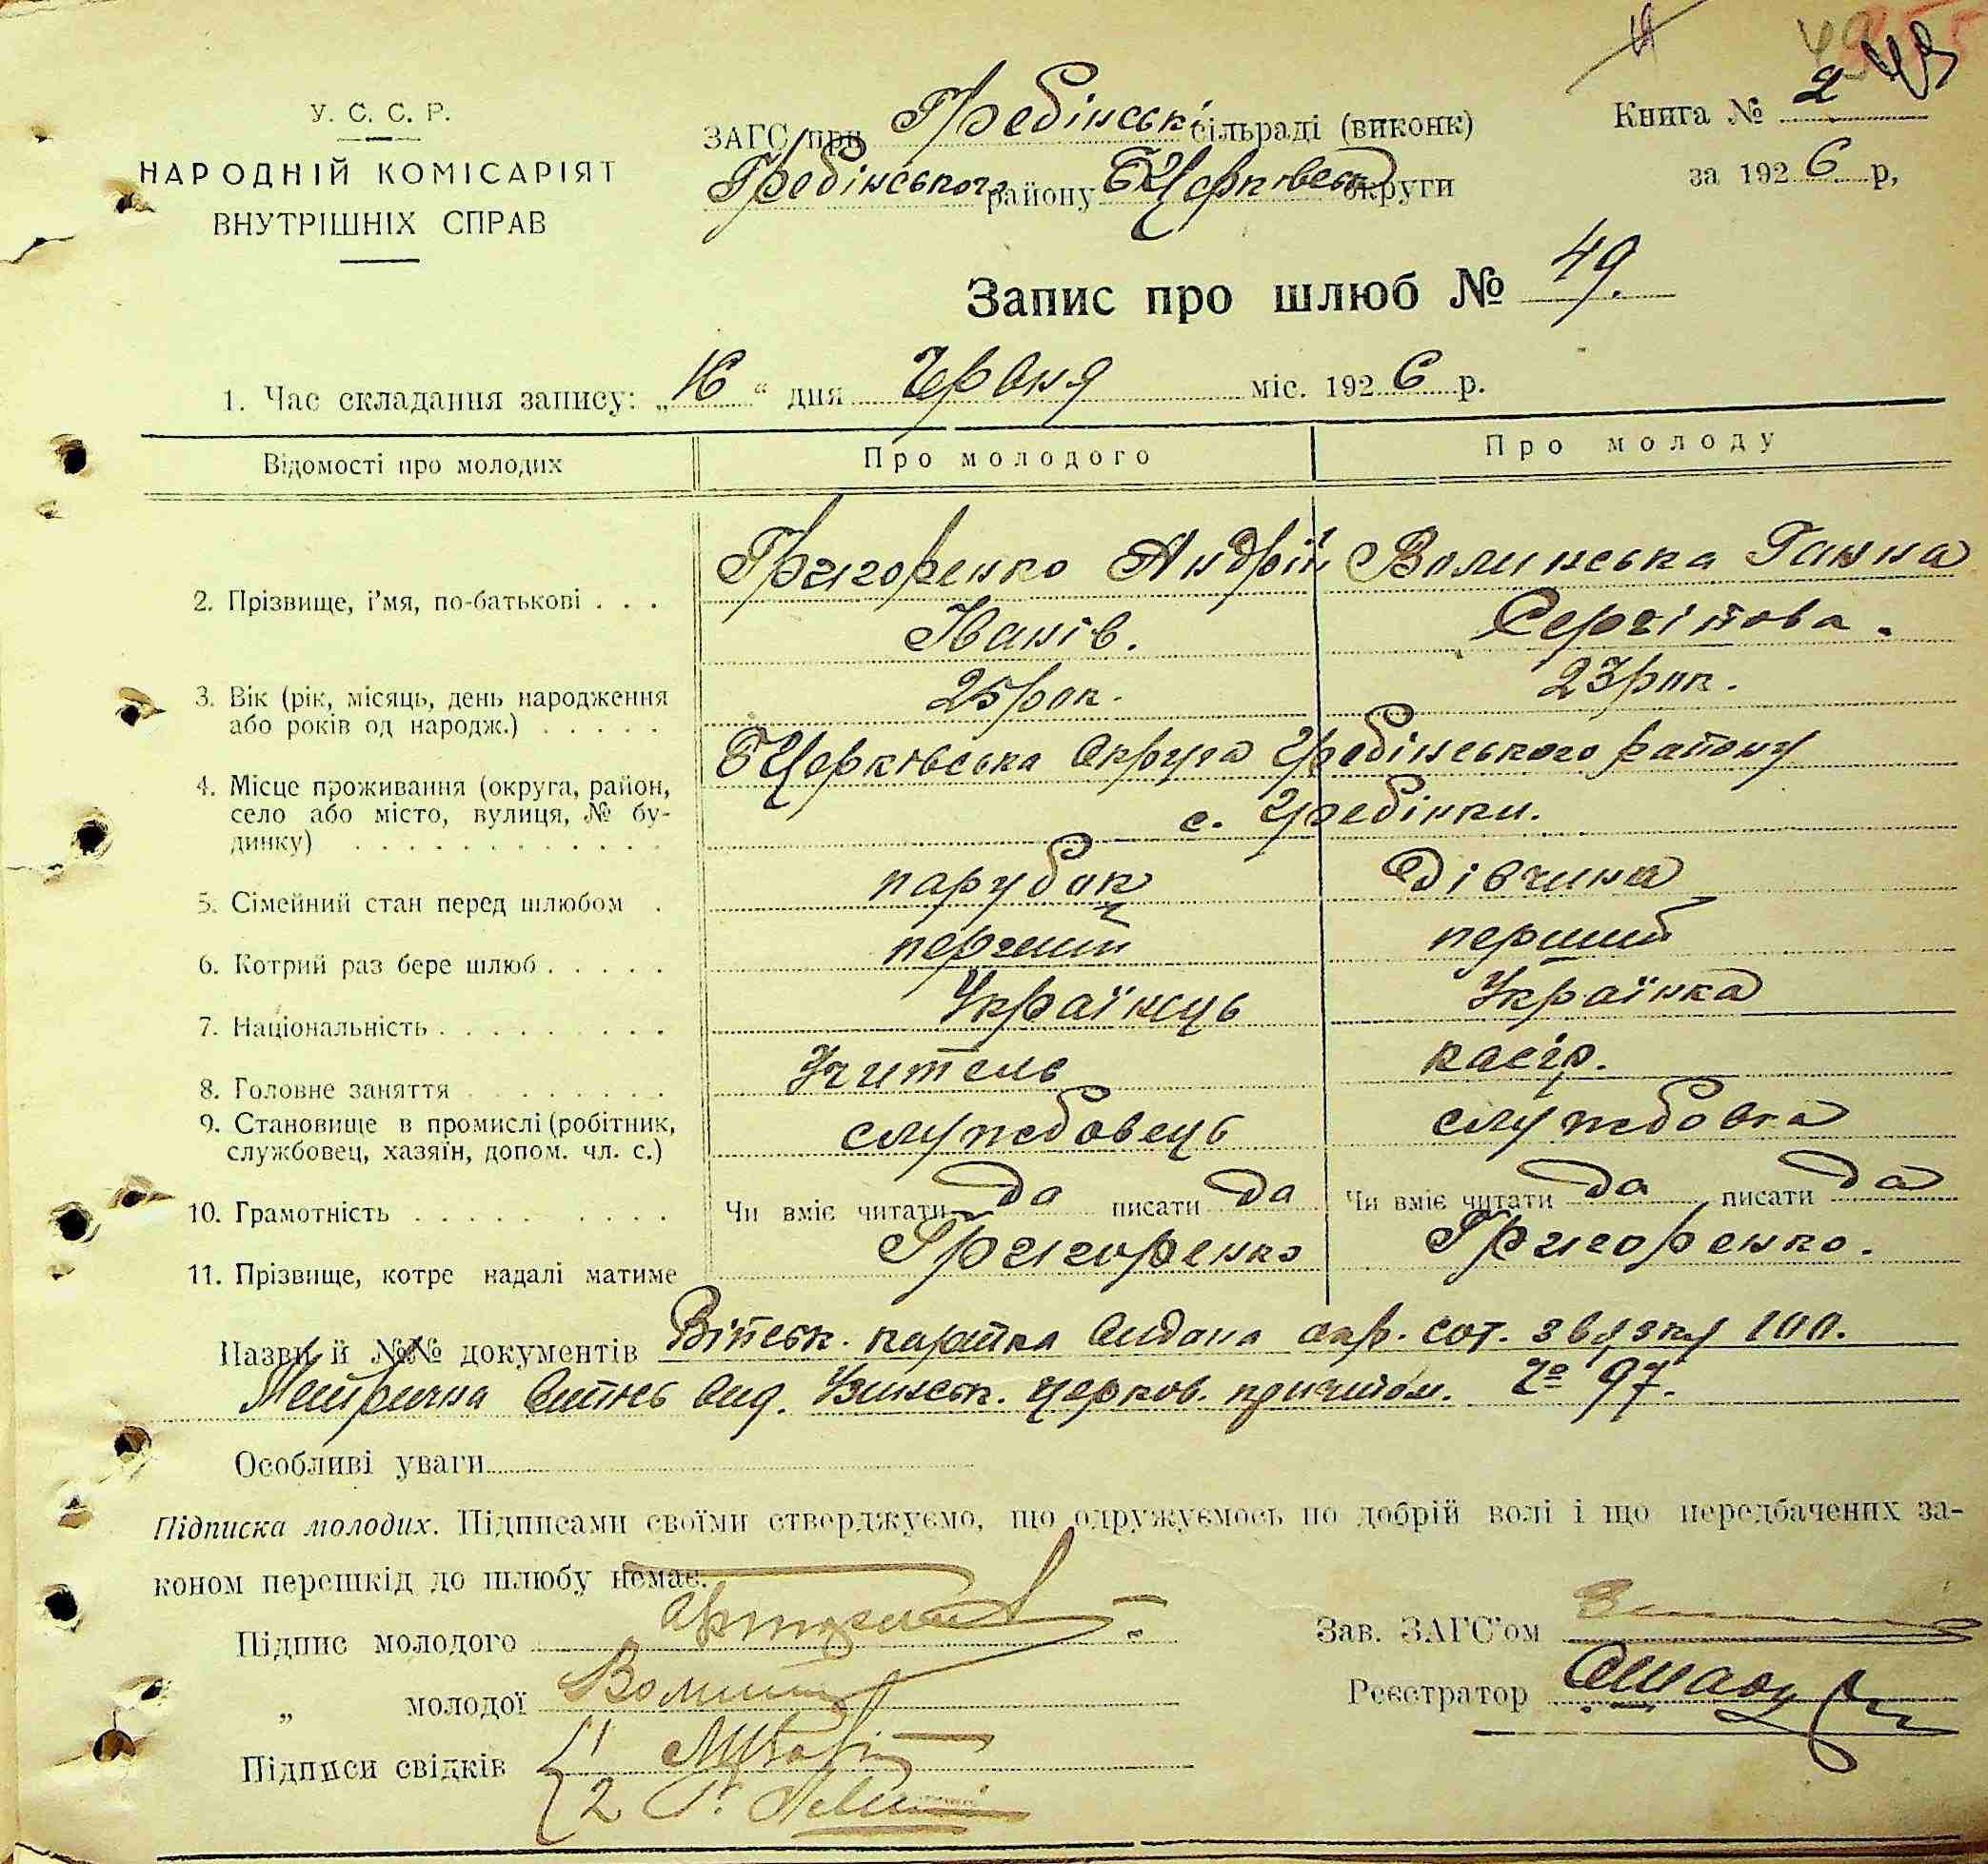 У. С. С. Р.
НАРОДНІЙ КОМІСАРІЯТ
ВНУТРІШНІХ СПРАВ
ЗАГС при Гребінськ. сільраді (виконк)
Гребінського району БЦерківськ округи
Книга № 2
за 1926 р,
Запис про шлюб № 49.
1. Час складання запису: „16“ дня Червня міс. 1926 р.
Відомості про молодих Про молодого Про молоду
2. Прізвище, і'мя, по-батькові . . . Григоренко Андрій Волинська Ганна
Іванів. Сергіїова.
3. Вік (рік, місяць, день народження 25 рок. 23 рок.
або років од народж.) . . . . .
4. Місце проживання (округа, район, БЦерківська Округа Гребінського району
село або місто, вулиця, № бу-
динку) . . . . . . . . . . . . с. Гребінки.
5. Сімейний стан перед шлюбом . парубок дівчина
6. Котрий раз бере шлюб . . . . . перший перший
7. Національність . . . . . . . . . Українець Українка
8. Головне заняття . . . . . . . . Учитель касір.
9. Становище в промислі (робітник, службовець службовка
службовец, хазяїн, допом. чл. с.)
10. Грамотність . . . . . . . . . Чи вміє читати да писати да Чи вміє читати да писати да
11. Прізвище, котре надалі матиме Григоренко Григоренко.
Назви й №№ документів Військ. картка видана окр. сот. звязку 100.
Метрична церков. причтом. 97.
Особливі уваги
Підписка молодих. Підписами своїми стверджуємо, що одружуємось по добрій волі і що передбачених за-
коном перешкід до шлюбу немає.
Підпис молодого
Зав. ЗАГС'ом
„ молодої Волинс
Реєстратор
Підписи свідків 1
2